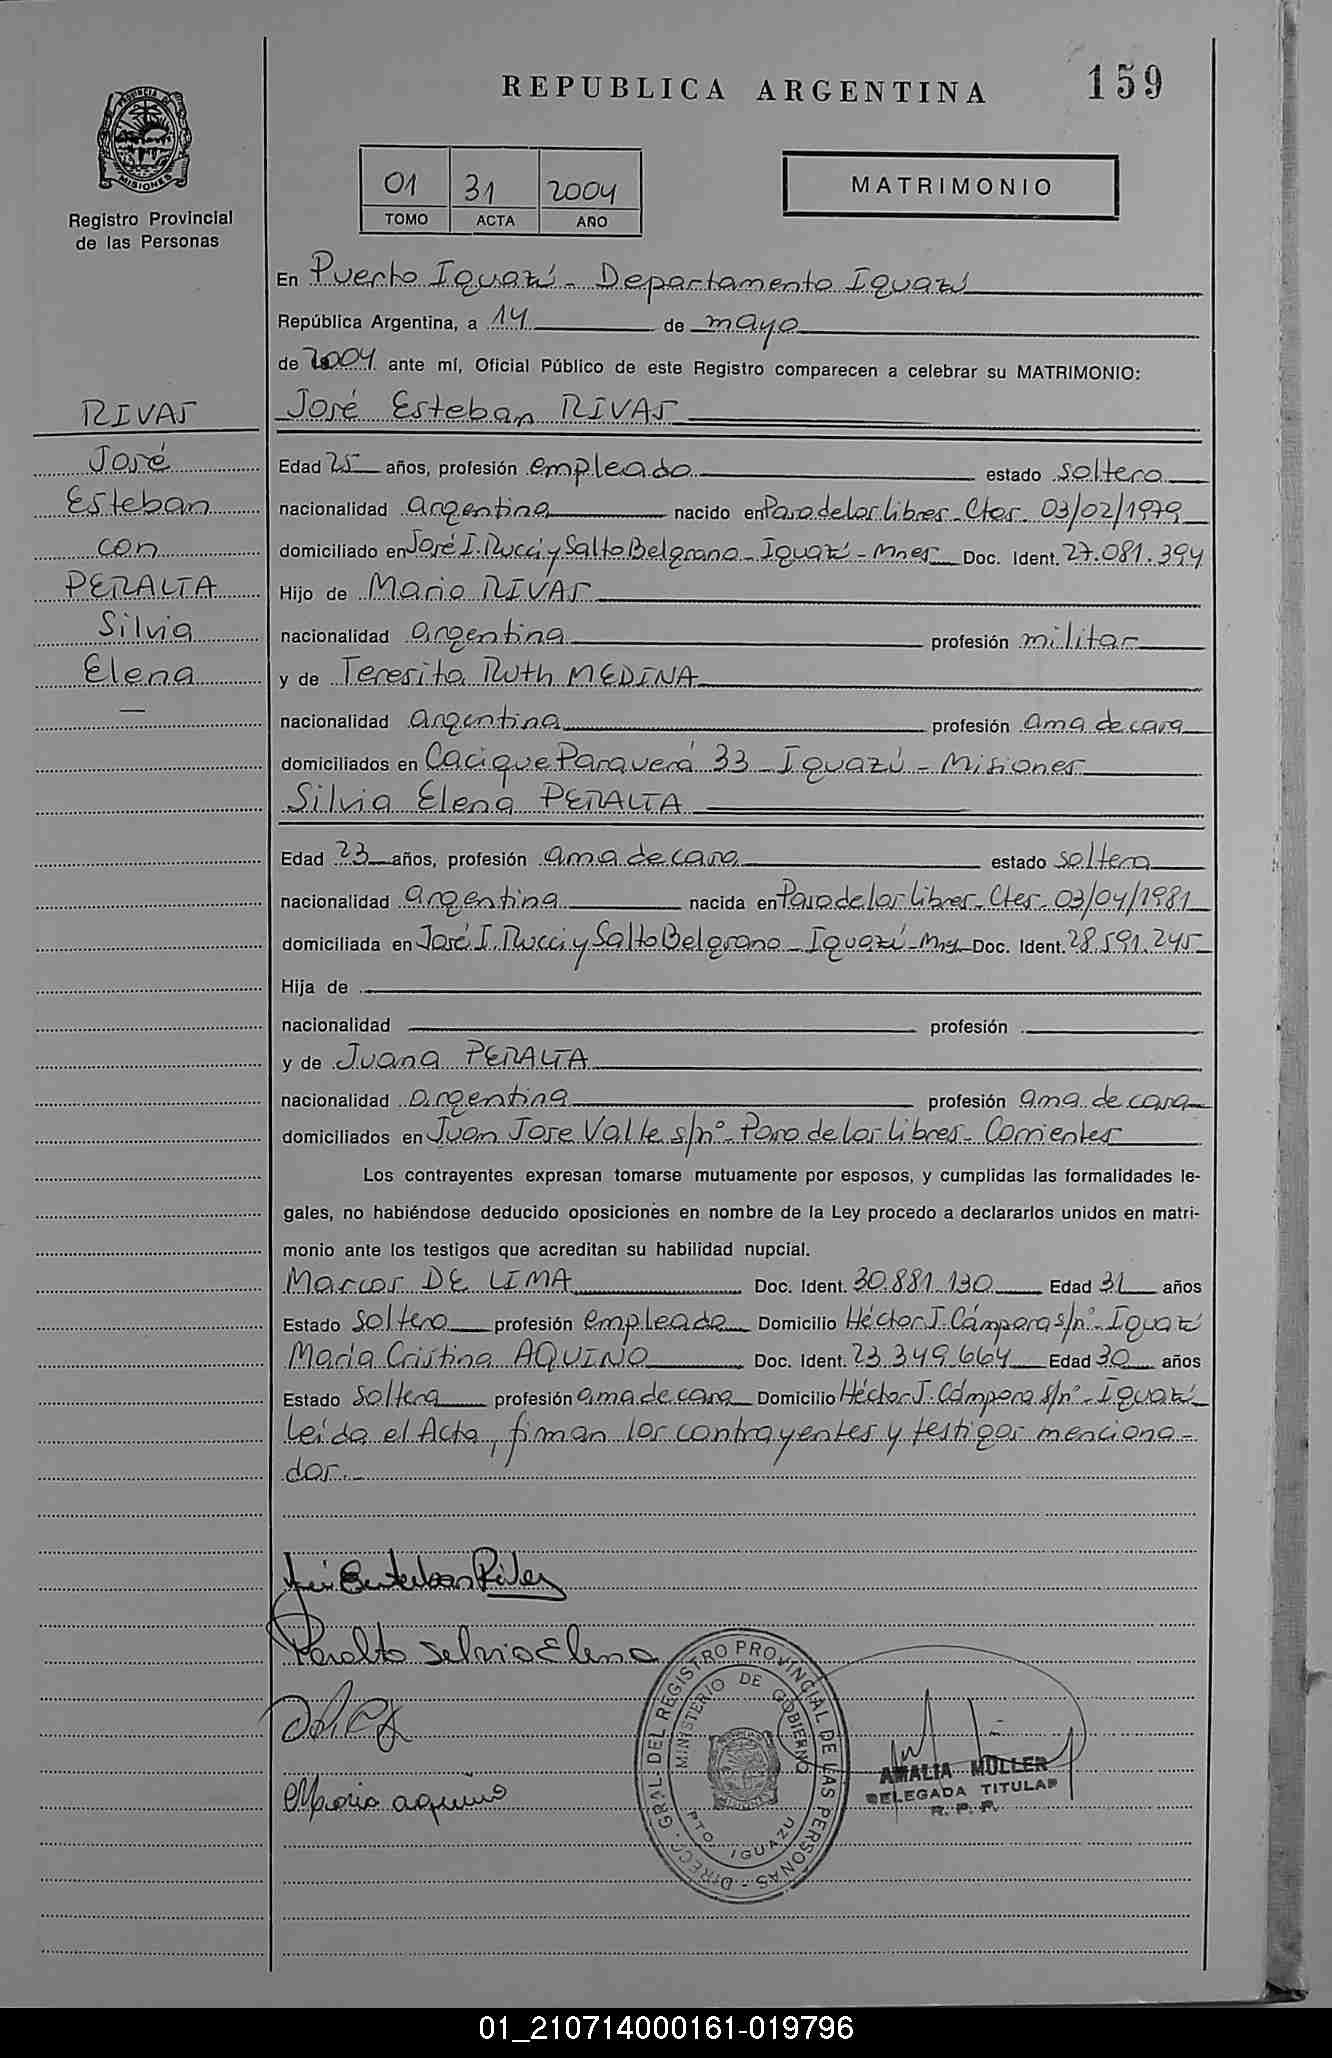 REPUBLICA ARGENTINA
159
PROVINCIA DE MISIONES
Registro Provincial
de las Personas
01 31 2004
TOMO ACTA AÑO
MATRIMONIO
En Puerto Iguazú - Departamento Iguazú
República Argentina, a 14 de mayo
de 2004 ante mí, Oficial Público de este Registro comparecen a celebrar su MATRIMONIO:
RIVAS
José
Esteban
con
PERALTA
Silvia
Elena
José Esteban RIVAS
Edad 25 años, profesión empleado estado soltero
nacionalidad argentina nacido en Paso de los libres - Ctes. 03/02/1979
domiciliado en José I. Rucci y Salto Belgrano - Iguazú - Mnes Doc. Ident. 27.081.394
Hijo de Mario RIVAS
nacionalidad argentina profesión militar
y de Teresita Ruth MEDINA
nacionalidad argentina profesión ama de casa
domiciliados en Cacique Paraverá 33 - Iguazú - Misiones
Silvia Elena PERALTA
Edad 23 años, profesión ama de casa estado soltera
nacionalidad argentina nacida en Paso de los libres - Ctes - 03/04/1981
domiciliada en José I. Rucci y Salto Belgrano - Iguazú - Mns Doc. Ident. 28.591.245
Hija de
nacionalidad profesión
y de Juana PERALTA
nacionalidad argentina profesión ama de casa
domiciliados en Juan Jose Valle s/nº - Paso de los libres - Corrientes
Los contrayentes expresan tomarse mutuamente por esposos, y cumplidas las formalidades le-
gales, no habiéndose deducido oposiciones en nombre de la Ley procedo a declararlos unidos en matri-
monio ante los testigos que acreditan su habilidad nupcial.
Marcos DE LIMA Doc. Ident. 30.881.130 Edad 31 años
Estado soltero profesión empleado Domicilio Héctor J. Cámpora s/nº - Iguazú
María Cristina AQUINO Doc. Ident. 23.349.664 Edad 30 años
Estado soltera profesión ama de casa Domicilio Héctor J. Cámpora s/nº - Iguazú
Leída el Acta, firman los contrayentes y testigos menciona-
dos.-
José Esteban Rivas
Peralta Silvia Elena
Maria aquino
DIRECC. GRAL. DEL REGISTRO PROVINCIAL DE LAS PERSONAS -
MINISTERIO DE GOBIERNO
PTO. IGUAZU
AMALIA MULLER
DELEGADA TITULAR
R. P. P.
01_210714000161-019796